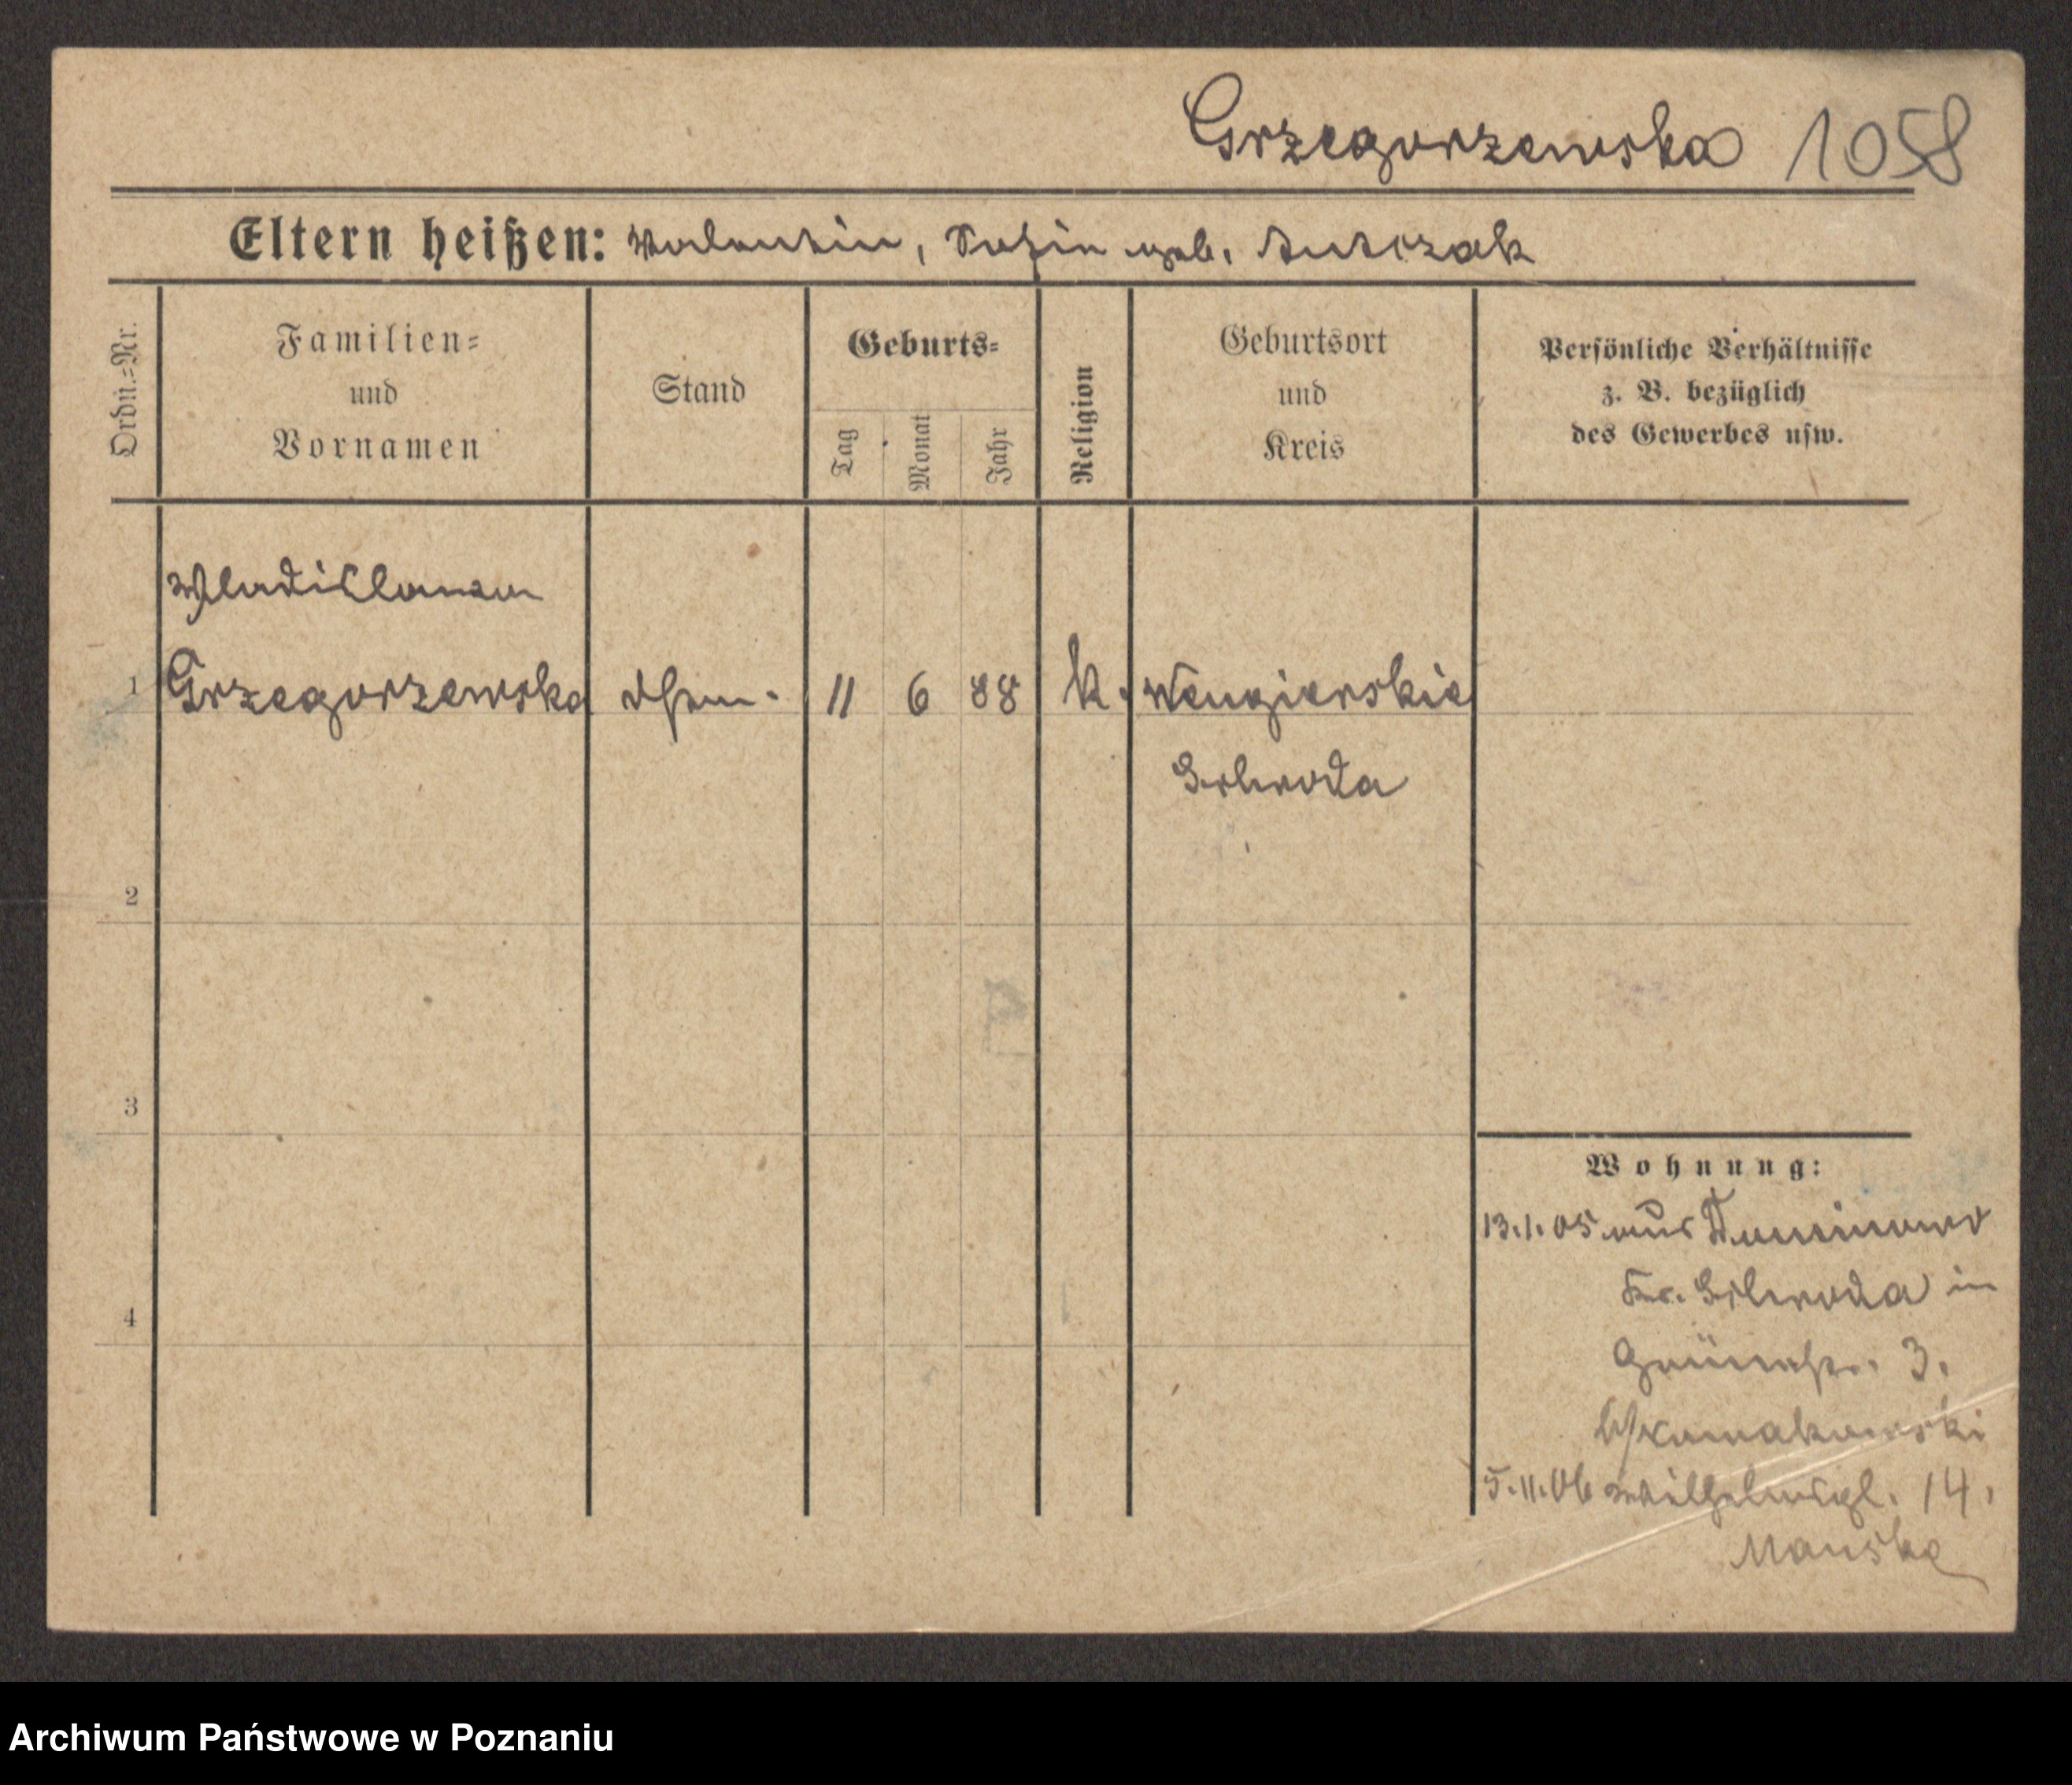 Grzegorzewska 1058
Eltern heißen: Valentin, Sofia geb. Antczak
Ordn.=Nr.
Familien=
und
Vornamen
Stand
Geburts=
Tag
Monat
Jahr
Religion
Geburtsort
und
Kreis
Persönliche Verhältnisse
z. B. bezüglich
des Gewerbes usw.
Wladislawa
1 Grzegorzewska 11 6 88 k. Wengierskie
Schroda
2
3
Wohnung:
13.1.05 aus Dominowo
Kr. Schroda in
4
Grünestr. 3.
5.11.06 Wilhelmspl. 14.
Manske
Archiwum Państwowe w Poznaniu